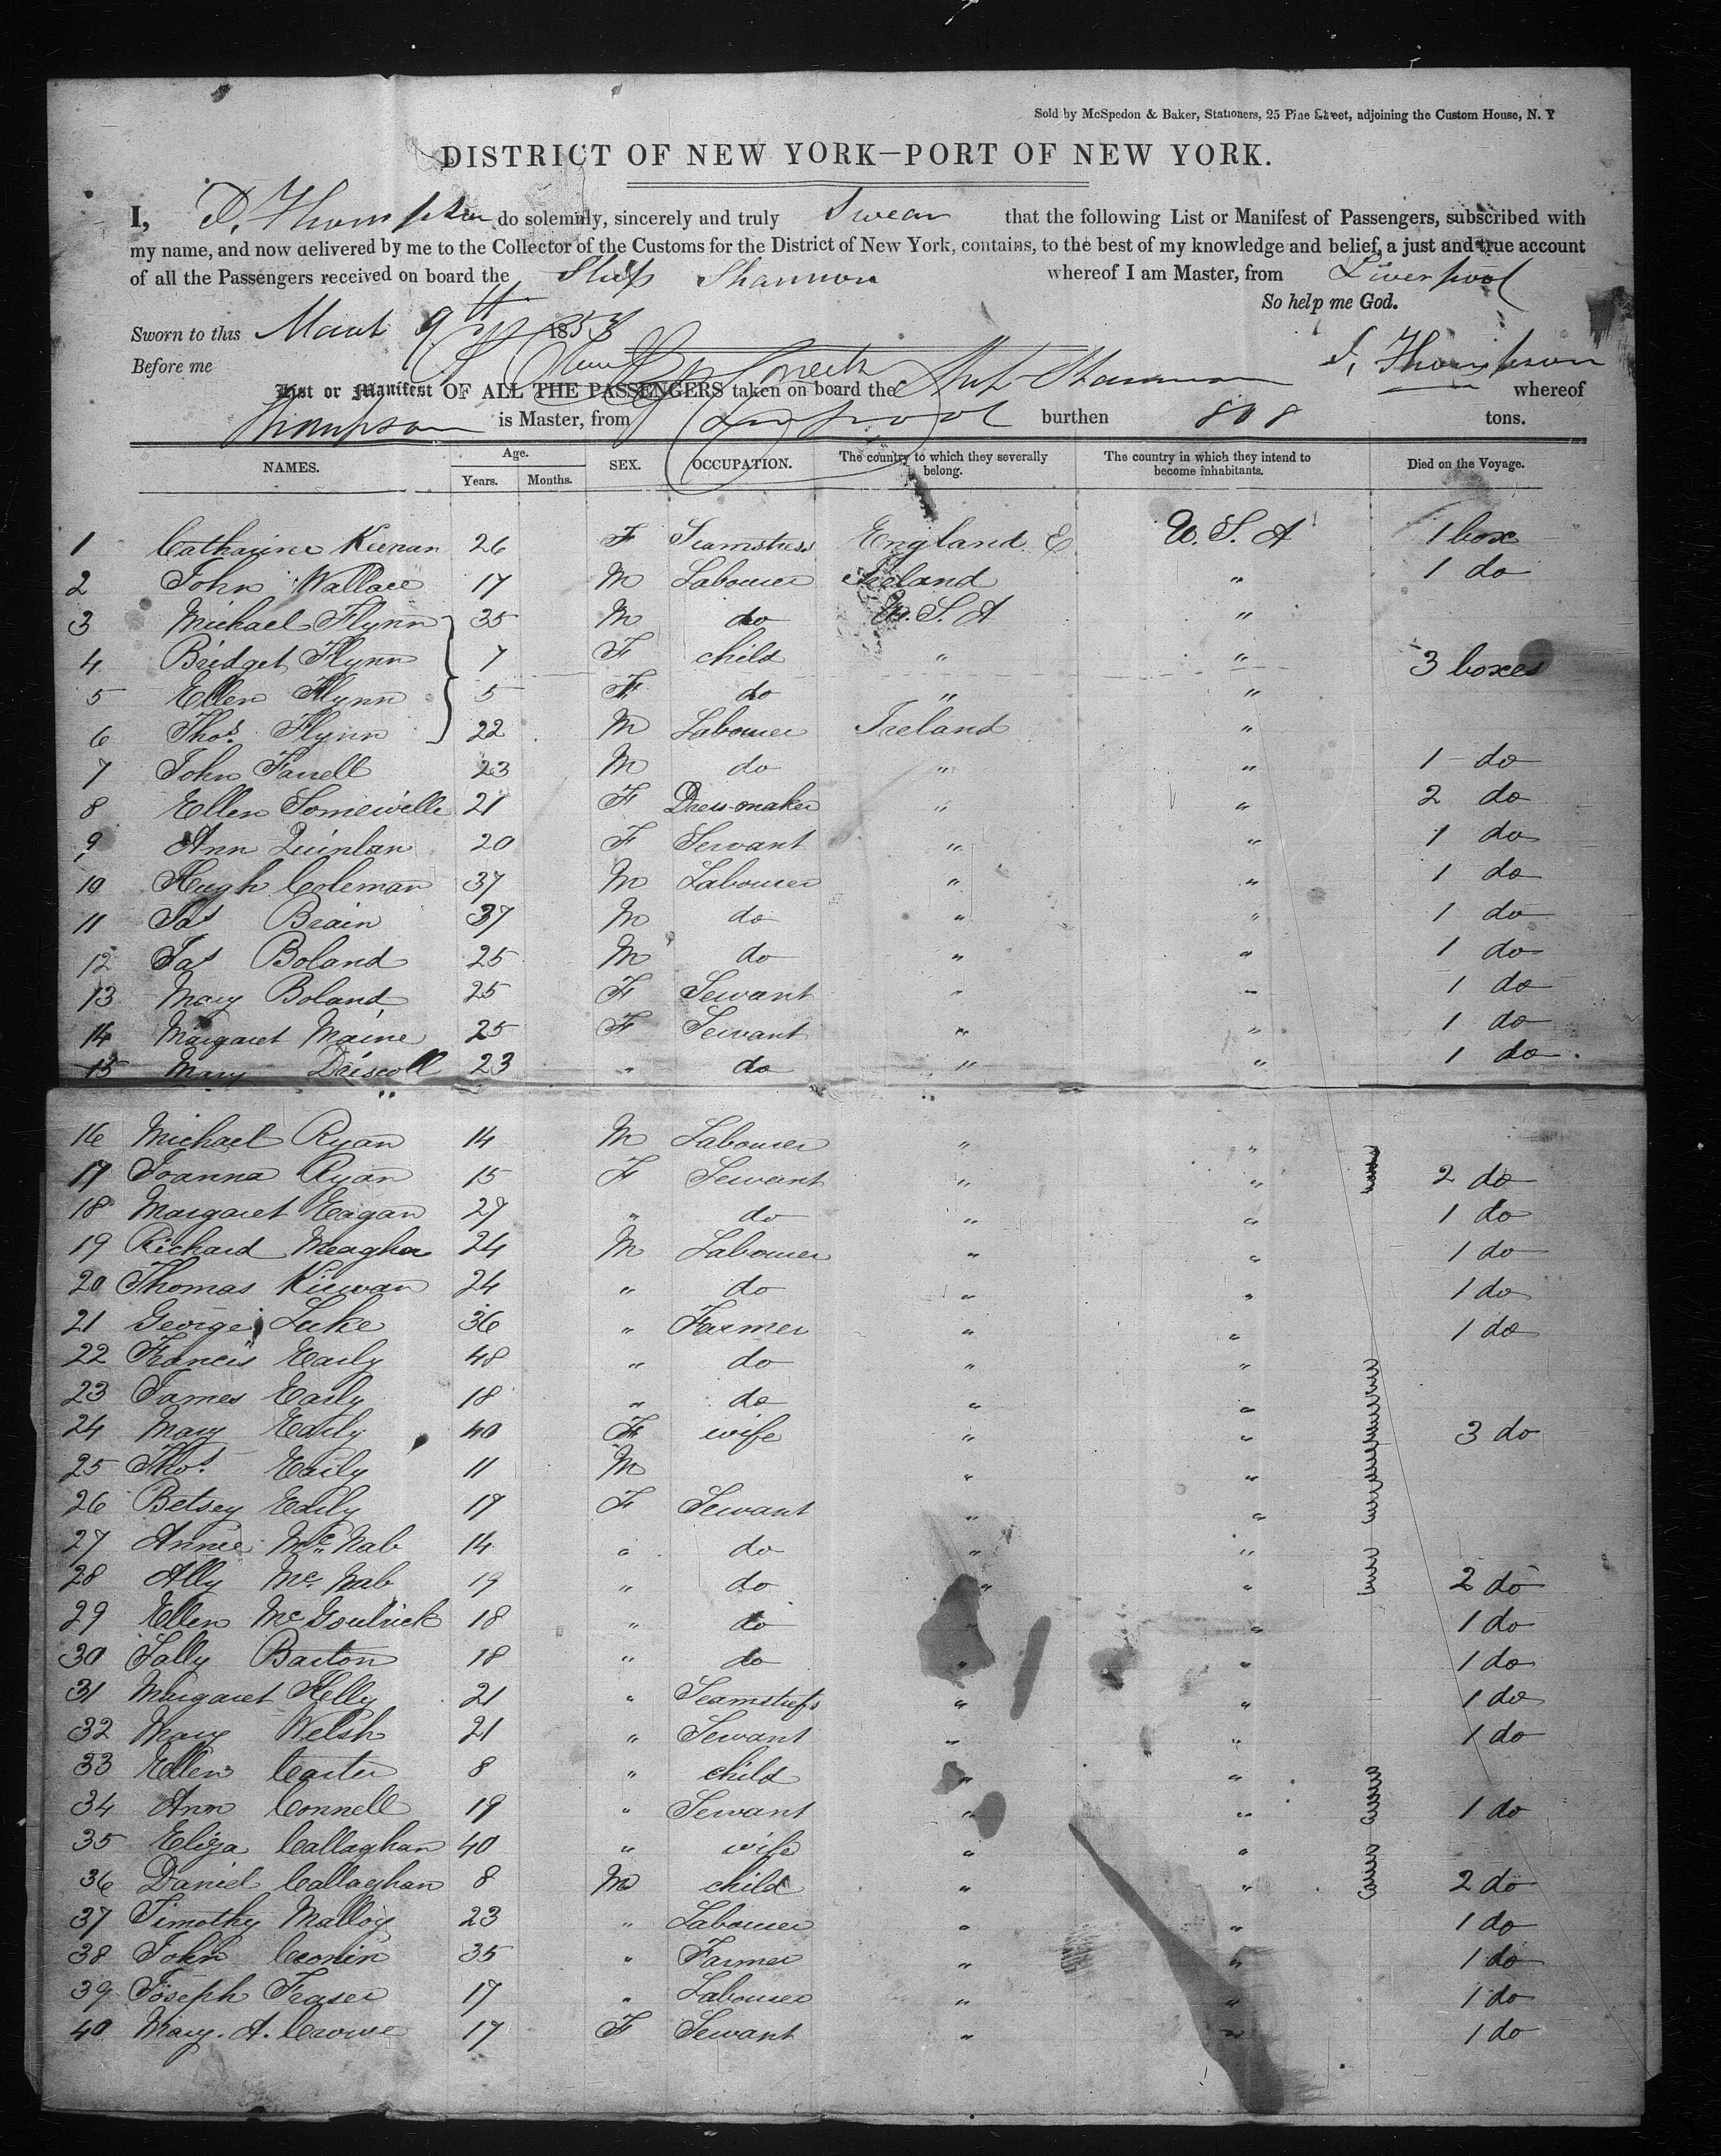 Sold by McSpedon & Baker, Stationers, 25 Pine Street, adjoining the Custom House, N. Y
DISTRICT OF NEW YORK—PORT OF NEW YORK.
I, Thompson do solemnly, sincerely and truly Swear that the following List or Manifest of Passengers, subscribed with
my name, and now delivered by me to the Collector of the Customs for the District of New York, contains, to the best of my knowledge and belief, a just and true account
of all the Passengers received on board the Ship Shannon whereof I am Master, from Liverpool
So help me God.
Sworn to this March 9th 1853
Before me Thompson
List or Manifest OF ALL THE PASSENGERS taken on board the Ship Shannon whereof
Thompson is Master, from Liverpool burthen 808 tons.
NAMES. Age. Years. Months. SEX. OCCUPATION. The country to which they severally belong. The country in which they intend to become inhabitants. Died on the Voyage.
1 Catharine Keenan 26 F Seamstress England E U.S.A 1 box
2 John Wallace 17 M Labourer Ireland " 1 do
3 Michael Flynn 35 M do U.S.A "
4 Bridget Flynn 7 F child " " 3 boxes
5 Ellen Flynn 5 F do " "
6 Thos. Flynn 22 M Labourer Ireland "
7 John Farrell 23 M do " " 1 do
8 Ellen Somerville 21 F Dress-maker " " 2 do
9 Ann Quinlan 20 F Servant " " 1 do
10 Hugh Coleman 37 M Labourer " " 1 do
11 Jas Brain 37 M do " " 1 do
12 Jas Boland 25 M do " " 1 do
13 Mary Boland 25 F Servant " " 1 do
14 Margaret Maine 25 F Servant " " 1 do
15 Mary Driscoll 23 " do " " 1 do
16 Michael Ryan 14 M Labourer " "
17 Joanna Ryan 15 F Servant " " 2 do
18 Margaret Eagan 27 " do " " 1 do
19 Richard Meagher 24 M Labourer " " 1 do
20 Thomas Kirwan 24 " do " " 1 do
21 George Luke 36 " Farmer " " 1 do
22 Francis Early 48 " do " "
23 James Early 18 " do " "
24 Mary Early 40 F wife " " 3 do
25 Thos. Early 11 M " "
26 Betsey Early 17 F Servant " "
27 Annie McNab 14 " do " "
28 Ally McNab 19 " do " " 2 do
29 Ellen McGoulrick 18 " do " " 1 do
30 Sally Barton 18 " do " " 1 do
31 Margaret Kelly 21 " Seamstress " " 1 do
32 Mary Welsh 21 " Servant " " 1 do
33 Ellen Carter 8 " child " "
34 Ann Connell 19 " Servant " " 1 do
35 Eliza Callaghan 40 " wife " "
36 Daniel Callaghan 8 M child " " 2 do
37 Timothy Malloy 23 " Labourer " " 1 do
38 John Cronin 35 " Farmer " " 1 do
39 Joseph Fraser 17 " Labourer " " 1 do
40 Mary. A. Crowe 17 F Servant " " 1 do